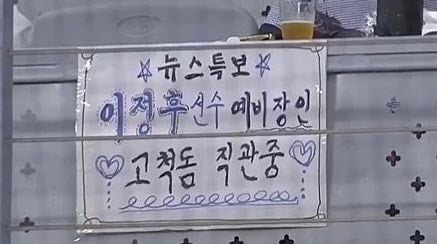 ☆뉴스특보☆
이정후선수 예비장인
♡고척돔 직관중♡